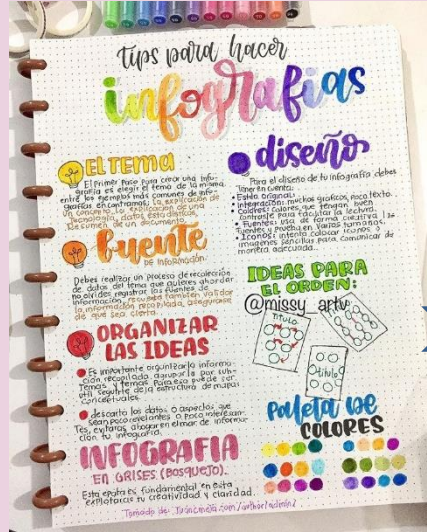 tips para hacer
infografías
EL TEMA
El primer paso para crear una info-
grafía es elegir el tema de la misma.
entre los ejemplos más comunes de info-
grafía encontramos: la explicación de
un concepto, la explicación de una
tecnología, datos estadísticos,
Resumen de un documento.
fuente
DE INFORMACIÓN
Debes realizar un proceso de recolección
de datos del tema que quieres abordar.
no olvides registrar las fuentes de
información, recuerda también validar
la información recopilada, asegurarse
de que sea cierta.
ORGANIZAR
LAS IDEAS
Es importante organizar la informa-
ción recopilada, agruparla por sub-
temas y temas. Para eso puede ser
útil seguirte de la estructura de mapas
conceptuales.
descarta los datos o aspectos que
sean poco relevantes o poco interesan-
tes, evitarás ahogar en el mar de informa-
ción tu infografía.
INFOGRAFÍA
EN GRISES (BOSQUEJO).
Esta etapa es fundamental en esta
explotarás tu creatividad y claridad
diseño
Para el diseño de tu infografía debes
tener en cuenta:
Estilo original:
Integración: muchos gráficos, poco texto.
Colores: colores que tengan buen
contraste para facilitar la lectura.
Fuentes: usa de forma creativa las
fuentes y prueba en varios tamaños.
Iconos: intenta colocar iconos o
imágenes sencillas para comunicar de
manera adecuada.
IDEAS PARA
EL ORDEN:
@missy_artv
Título
título
Paleta de
COLORES
Tomado de: